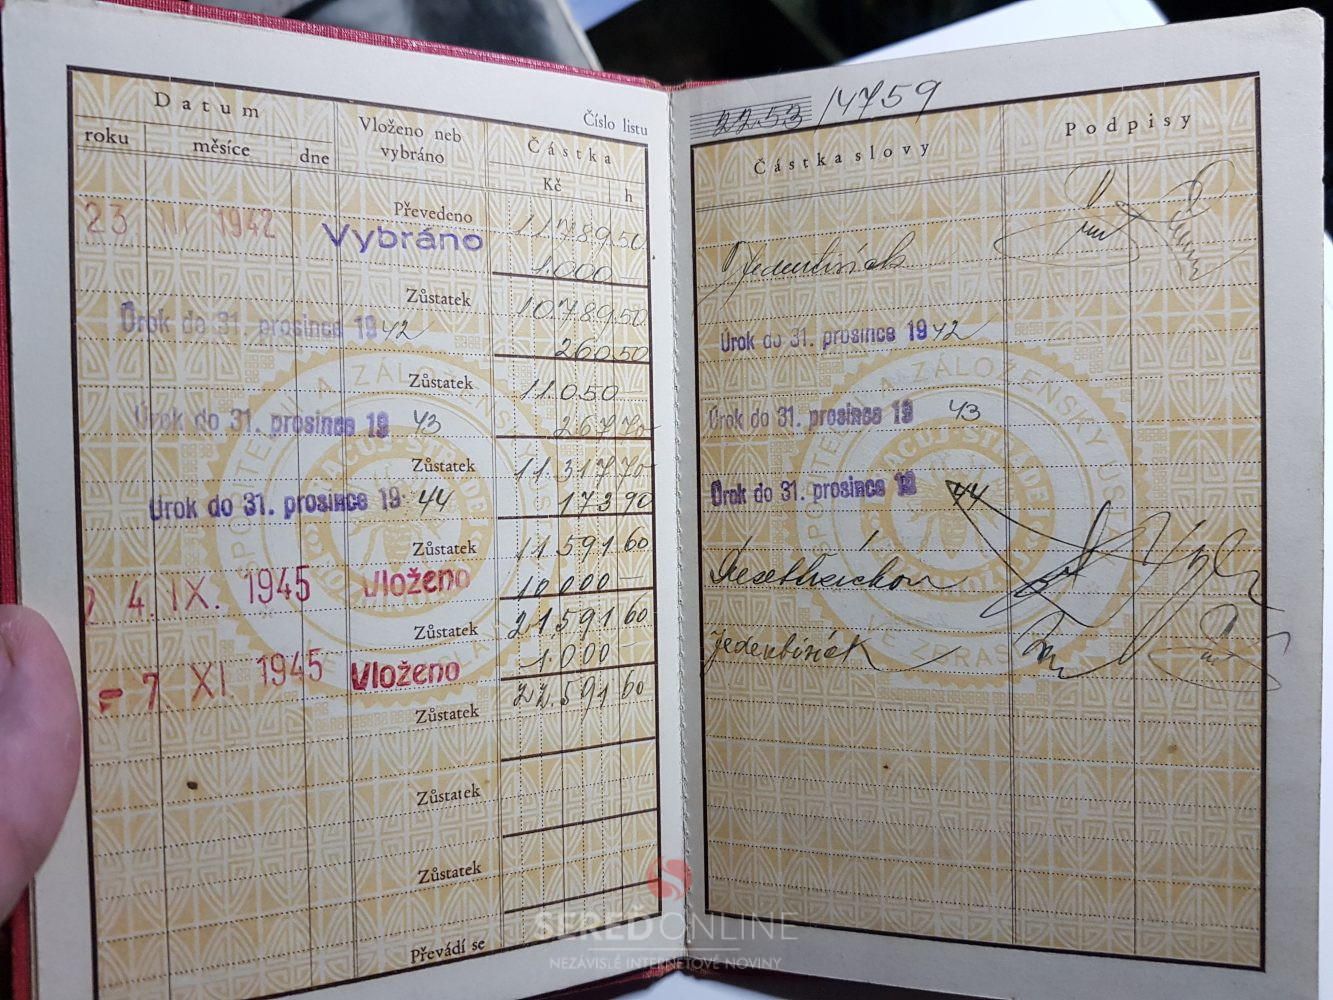 Datum
Vloženo neb vybráno
Číslo listu
Částka
roku měsíce dne
Kč h
Převedeno 11789 50
23 III 1942 Vybráno 1.000 —
Zůstatek 10789 50
Úrok do 31. prosince 1942 260 50
Zůstatek 11.050
Úrok do 31. prosince 1943 267 70
Zůstatek 11.317 70
Úrok do 31. prosince 1944 173 90
Zůstatek 11.591 60
4. IX. 1945 Vloženo 10.000 —
Zůstatek 21.591 60
- 7. XI 1945 Vloženo 1.000 —
Zůstatek 22.591 60
Zůstatek
Zůstatek
Převádí se
22.53 14759
Částka slovy Podpisy
Úrok do 31. prosince 1942
Úrok do 31. prosince 1943
Úrok do 31. prosince 1944
SEREĎONLINE
NEZÁVISLÉ INTERNETOVÉ NOVINY